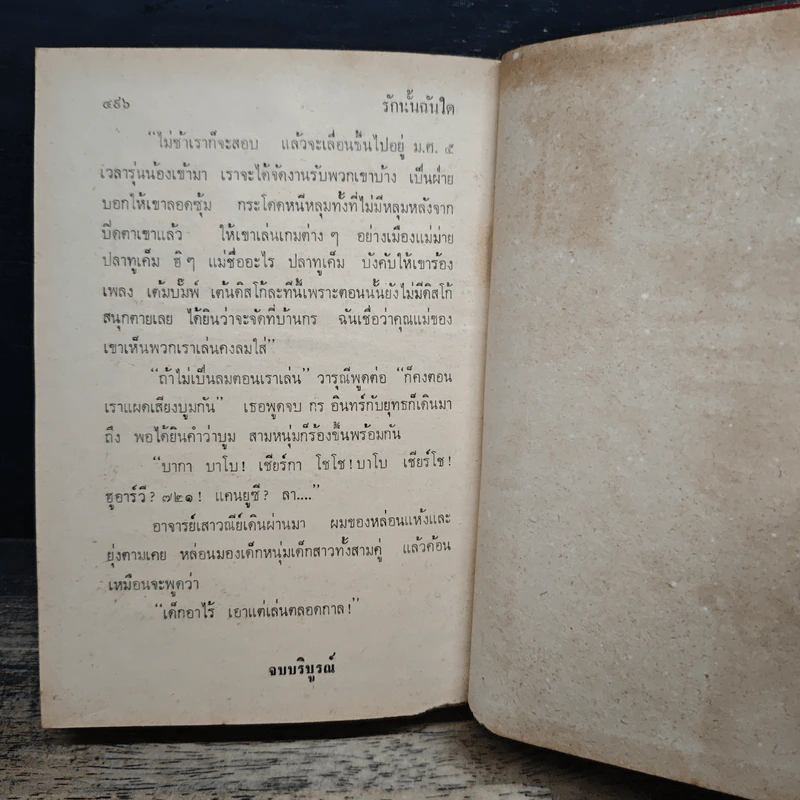 ๔๙๖ รักนั้นฉันใด
“ไม่ช้าเราก็จะสอบ แล้วจะเลื่อนชั้นไปอยู่ ม.ศ. ๕
เวลารุ่นน้องเข้ามา เราจะได้จัดงานรับพวกเขาบ้าง เป็นฝ่าย
บอกให้เขาลอดซุ้ม กระโดดหนีหลุมทั้งที่ไม่มีหลุมหลังจาก
ปิดตาเขาแล้ว ให้เขาเล่นเกมต่าง ๆ อย่างเมืองแม่ม่าย
ปลาทูเค็ม ฮิ ๆ แม่ชื่ออะไร ปลาทูเค็ม บังคับให้เขาร้อง
เพลง เต้มบั๊มพ์ เต้นดิสโก้ละทีนี้เพราะตอนนั้นยังไม่มีดิสโก้
สนุกตายเลย ได้ยินว่าจะจัดที่บ้านกร ฉันเชื่อว่าคุณแม่ของ
เขาเห็นพวกเราเล่นคงลมใส่”
“ถ้าไม่เป็นลมตอนเราเล่น” วารุณีพูดต่อ “ก็คงตอน
เราแผดเสียงบูมกัน” เธอพูดจบ กร อินทร์กับยุทธก็เดินมา
ถึง พอได้ยินคำว่าบูม สามหนุ่มก็ร้องขึ้นพร้อมกัน
“บากา บาโบ! เชียร์กา โชโช! บาโบ เชียร์โช!
ฮูอาร์วี? ๗๒๑! แคนยูซี? ลา....”
อาจารย์เสาวณีย์เดินผ่านมา ผมของหล่อนแห้งและ
ยุ่งตามเคย หล่อนมองเด็กหนุ่มเด็กสาวทั้งสามคู่ แล้วค้อน
เหมือนจะพูดว่า
“เด็กอาไร้ เอาแต่เล่นตลอดกาล!”
จบบริบูรณ์